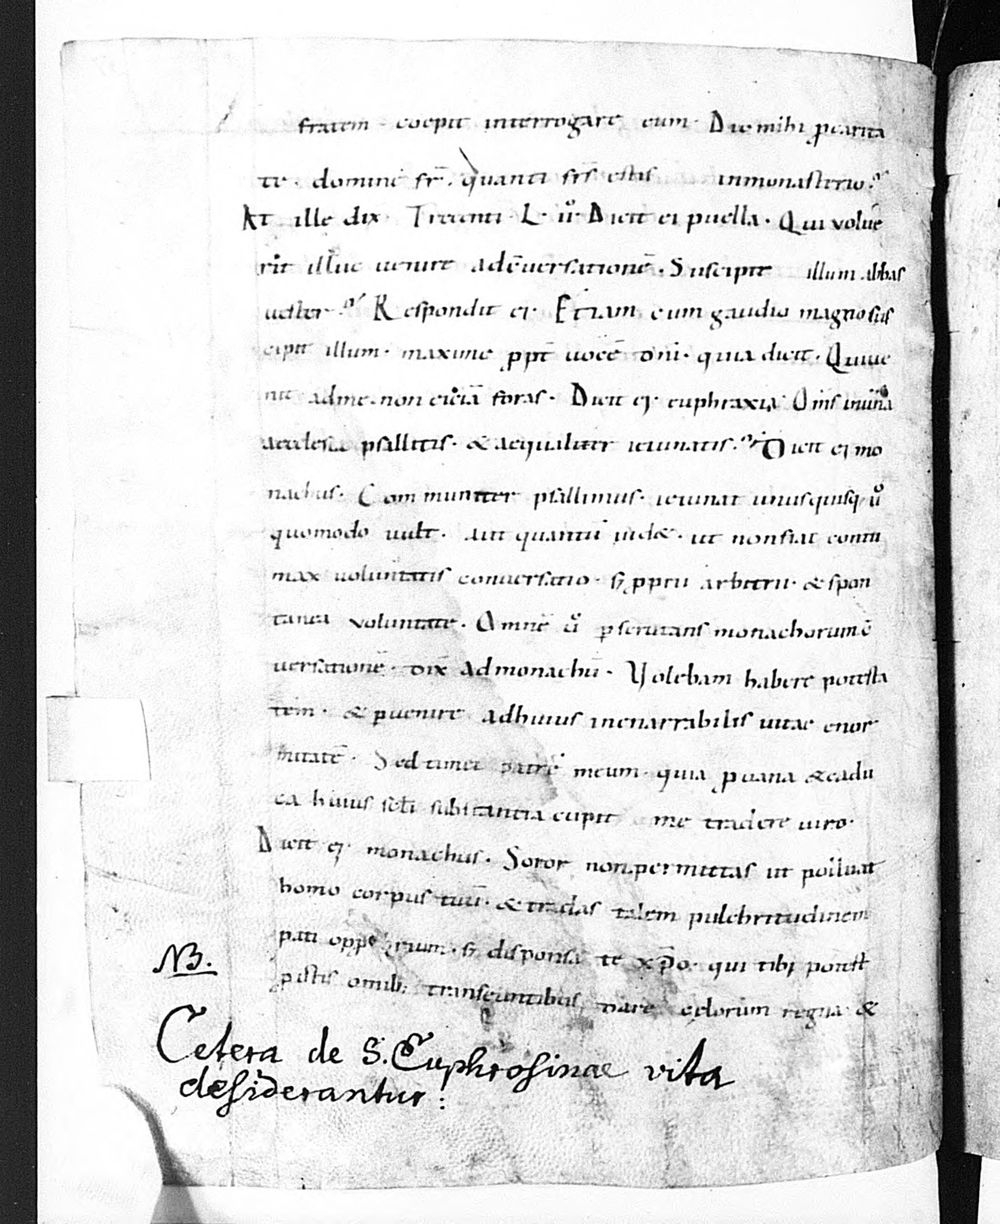 fratrem · coepit interrogare eum · Dic mihi p̱ carita
te · domine fr̄ · quanti fr̄s estis inmonasterio ·
At ille dix̄ · Trecenti · L · ii · Dicit ei puella · Qui volue
rit illuc uenire adc̄uersationē · Suscipit illum abbas
uester · Respondit ei · Etiam cum gaudio magno sus
cipit illum · maxime ppt̄ uocē dn̄i · quia dicit · Qui ue
nit adme · non eiciā foras · Dicit ei euphraxia Om̄s inuna
aecclesia psallitis · & aequaliter ieiunatis · Dicit ei mo
nachus · Communiter psallimus · ieiunat unusquisq; ů
quomodo uult · aut quantū uid& · ut nonfiat contu
max uoluntatis conuersatio · s; pprii arbitrii · & spon
tanea voluntate · Omnē perscrutans monachorum c̄
uersationē · dix̄ admonachū · Volebam habere potesta
tem · & puenire adhuius inenarrabilis uitae enor
mitatē · Sed timeo patrē meum · quia p uana & cadu
ca huius sc̄li substantia cupit me tradere uiro ·
Dicit ei monachus · Soror non permittas ut polluat
homo corpus tuū · & tradas talem pulchritudinem
pati opprobrium · s; disponsa te xp̄o · qui tibi potest
p istis omib; transeuntibus dare celorum regna &
NB.
Cetera de S. Euphrosinae vita
desiderantur :